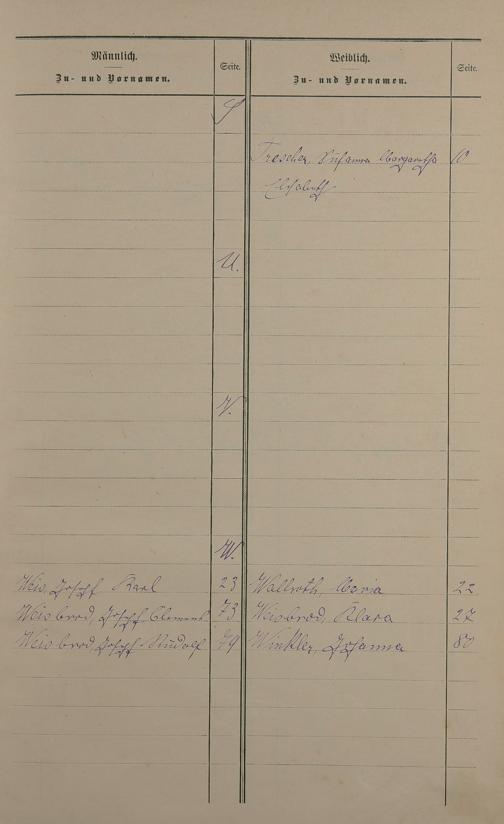 Männlich.
Zu- und Vornamen.
Seite.
Weiblich.
Zu- und Vornamen.
Seite.
Trescher, Susanna Margaretha 10
Elisabeth
U.
V.
W.
Weis, Joseph Karl 23 Wallroth, Maria 22
Weisbrod, Joseph Clemens 73 Weisbrod, Klara 27
Weisbrod, Joseph Rudolf 79 Winkler, Johanna 80